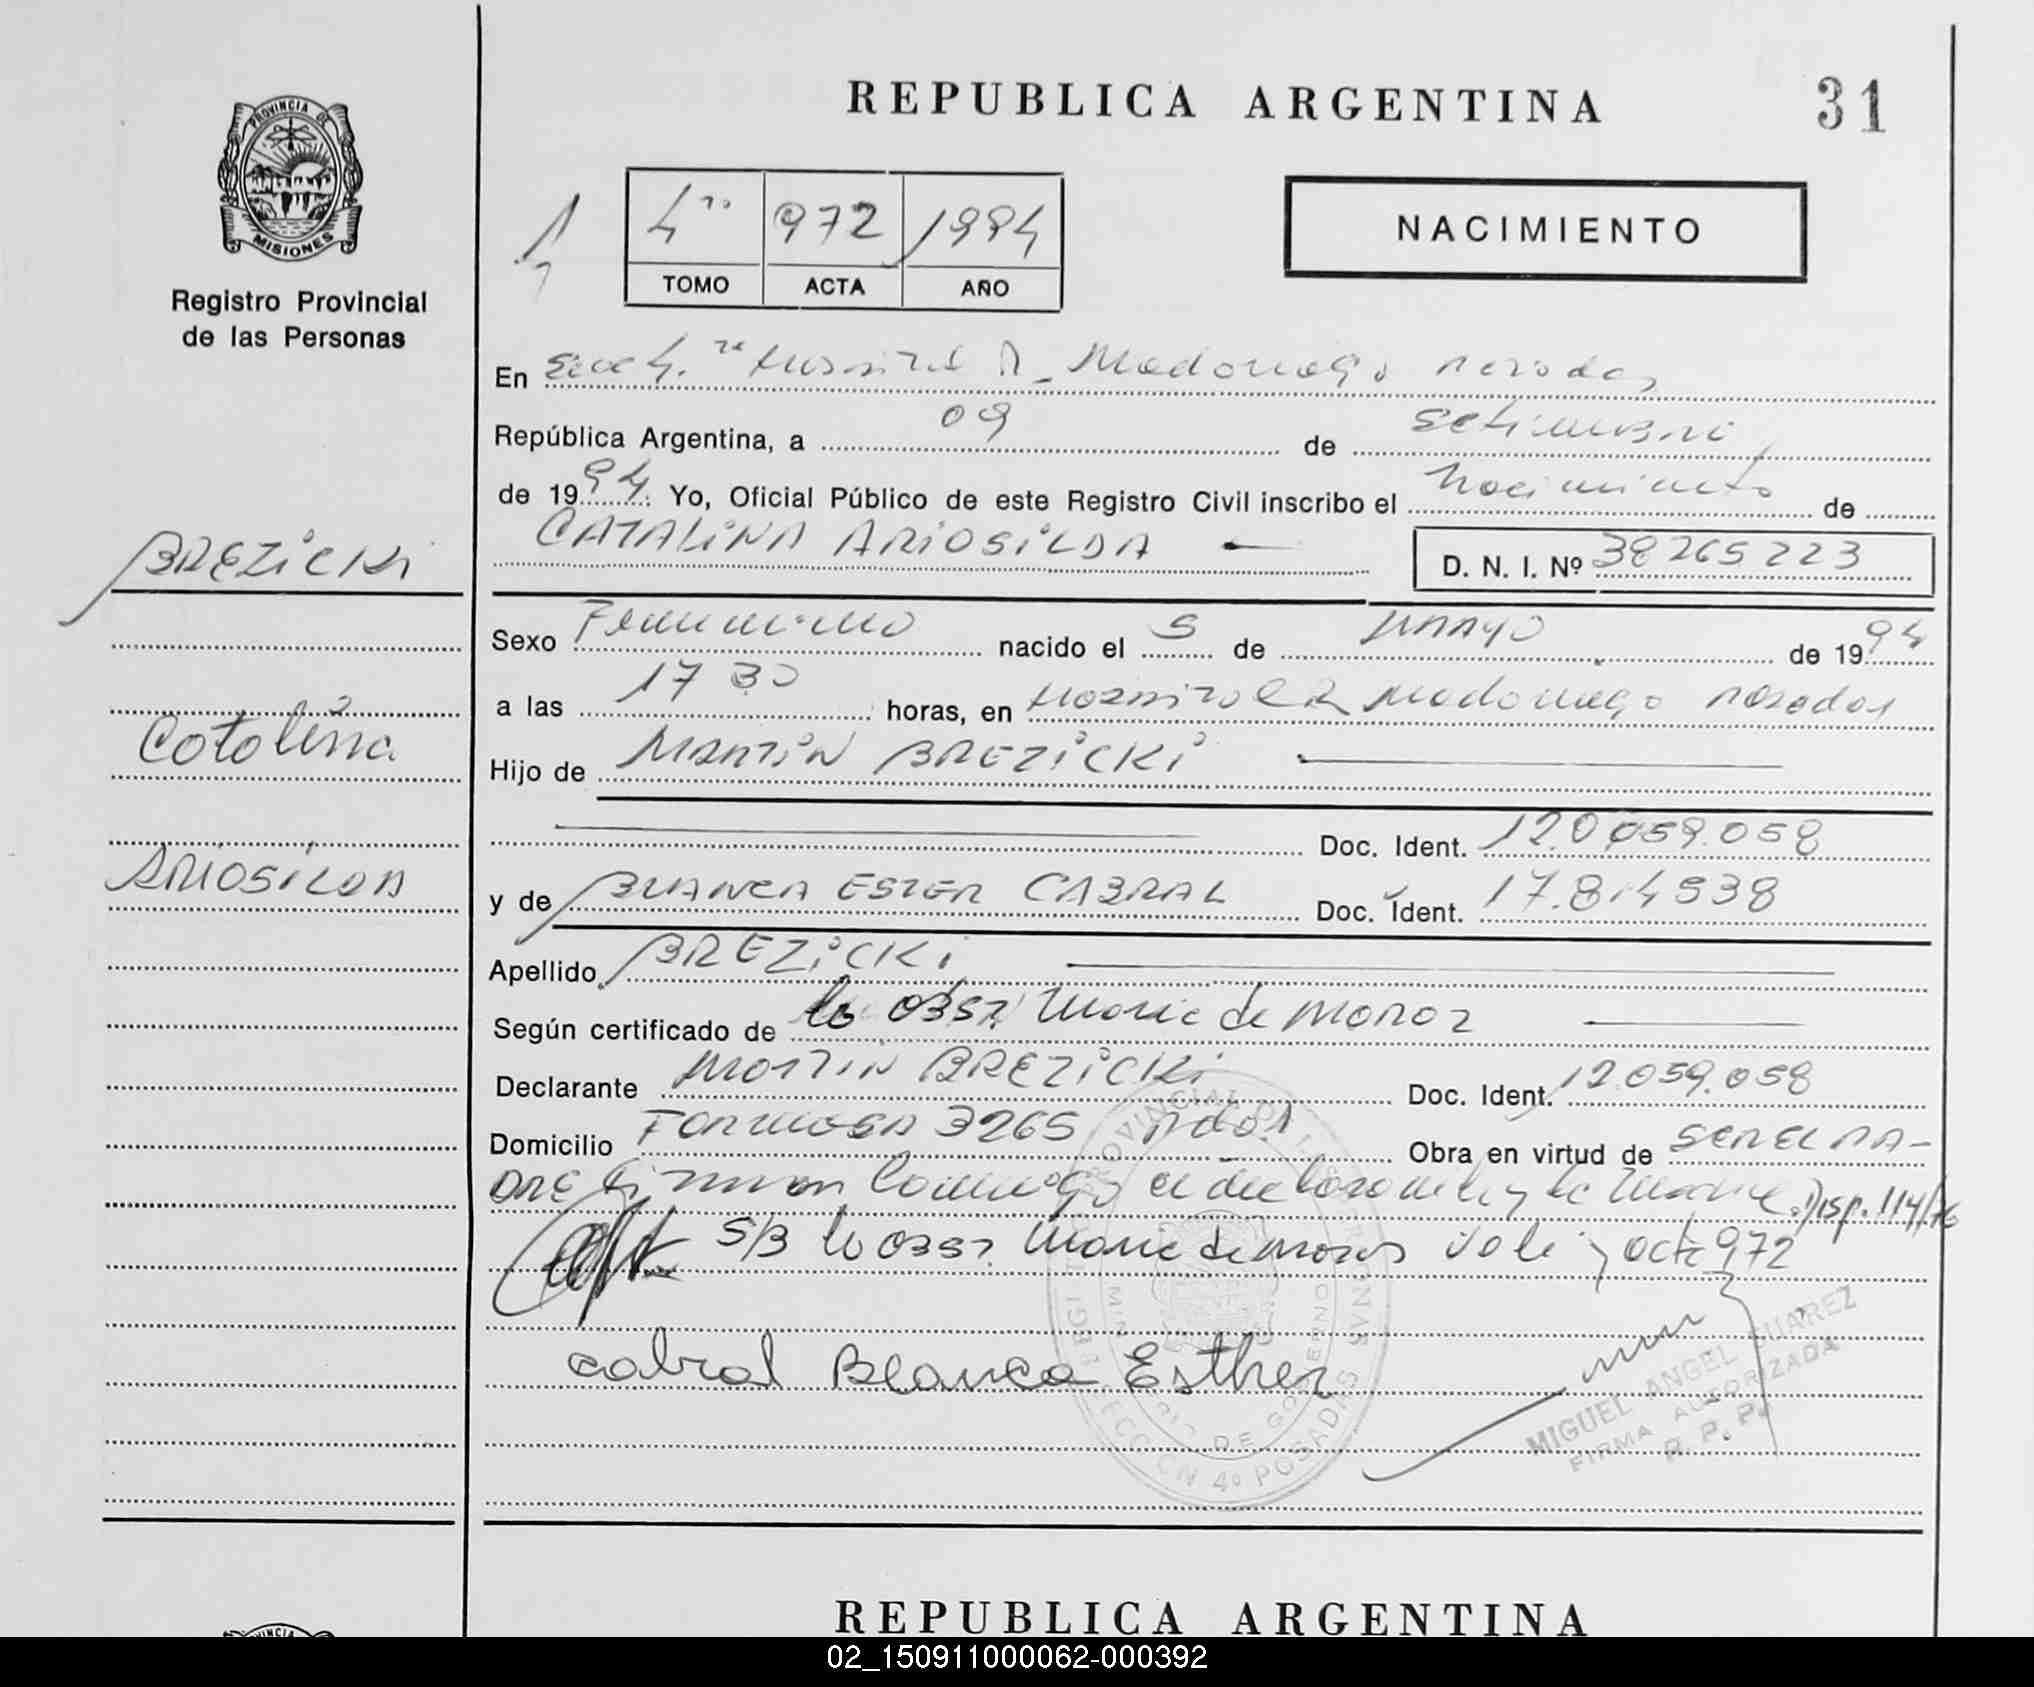 REPUBLICA ARGENTINA
31
PROVINCIA DE
MISIONES
Registro Provincial
de las Personas
4to 972 1994
TOMO ACTA AÑO
NACIMIENTO
En Secc 4.ta Hospital R. Madariaga Posadas
República Argentina, a 09 de Setiembre
de 1994. Yo, Oficial Público de este Registro Civil inscribo el Nacimiento de
CATALINA ARIOSILDA
D. N. I. Nº 38265223
BREZICKI
Catalina
ARIOSILDA
Sexo Femenino nacido el 5 de MAYO de 1994
a las 17 30 horas, en Hospital R Madariaga Posadas
Hijo de MARTIN BREZICKI
Doc. Ident. 12.0059.058
y de BLANCA ESTER CABRAL Doc. Ident. 17.814538
Apellido BREZICKI
Según certificado de la obst Maria de Moroz
Declarante MARTIN BREZICKI Doc. Ident. 12.059.058
Domicilio FORMOSA 3265 Pdas Obra en virtud de SER EL PA-
DRE firman conmigo el declarante y la madre. Disp. 114/76
S/B la obst Maria de Moroz vale y acta 972
Cabral Blanca Esther
REGISTRO PROVINCIAL DE LAS PERSONAS
MINISTERIO DE GOBIERNO
SECCION 4º POSADAS
MIGUEL ANGEL SUAREZ
FIRMA AUTORIZADA
R. P. P.
REPUBLICA ARGENTINA
02_150911000062-000392